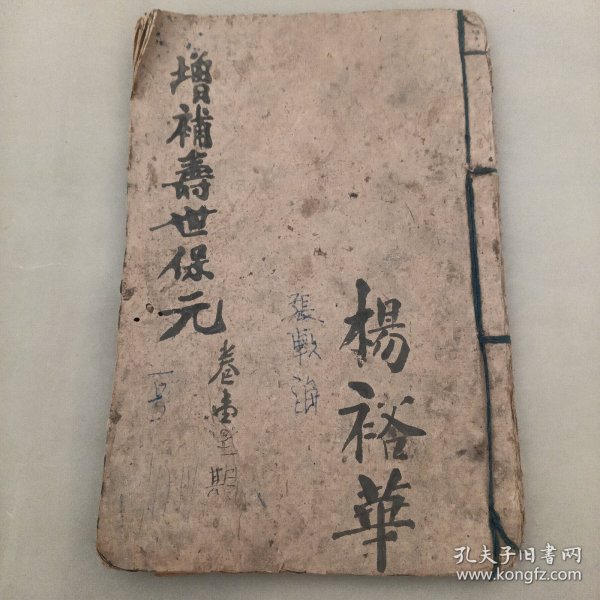 增補壽世保元
卷壹
期
張
海
楊裕華
孔夫子旧書网
www.kongfz.com